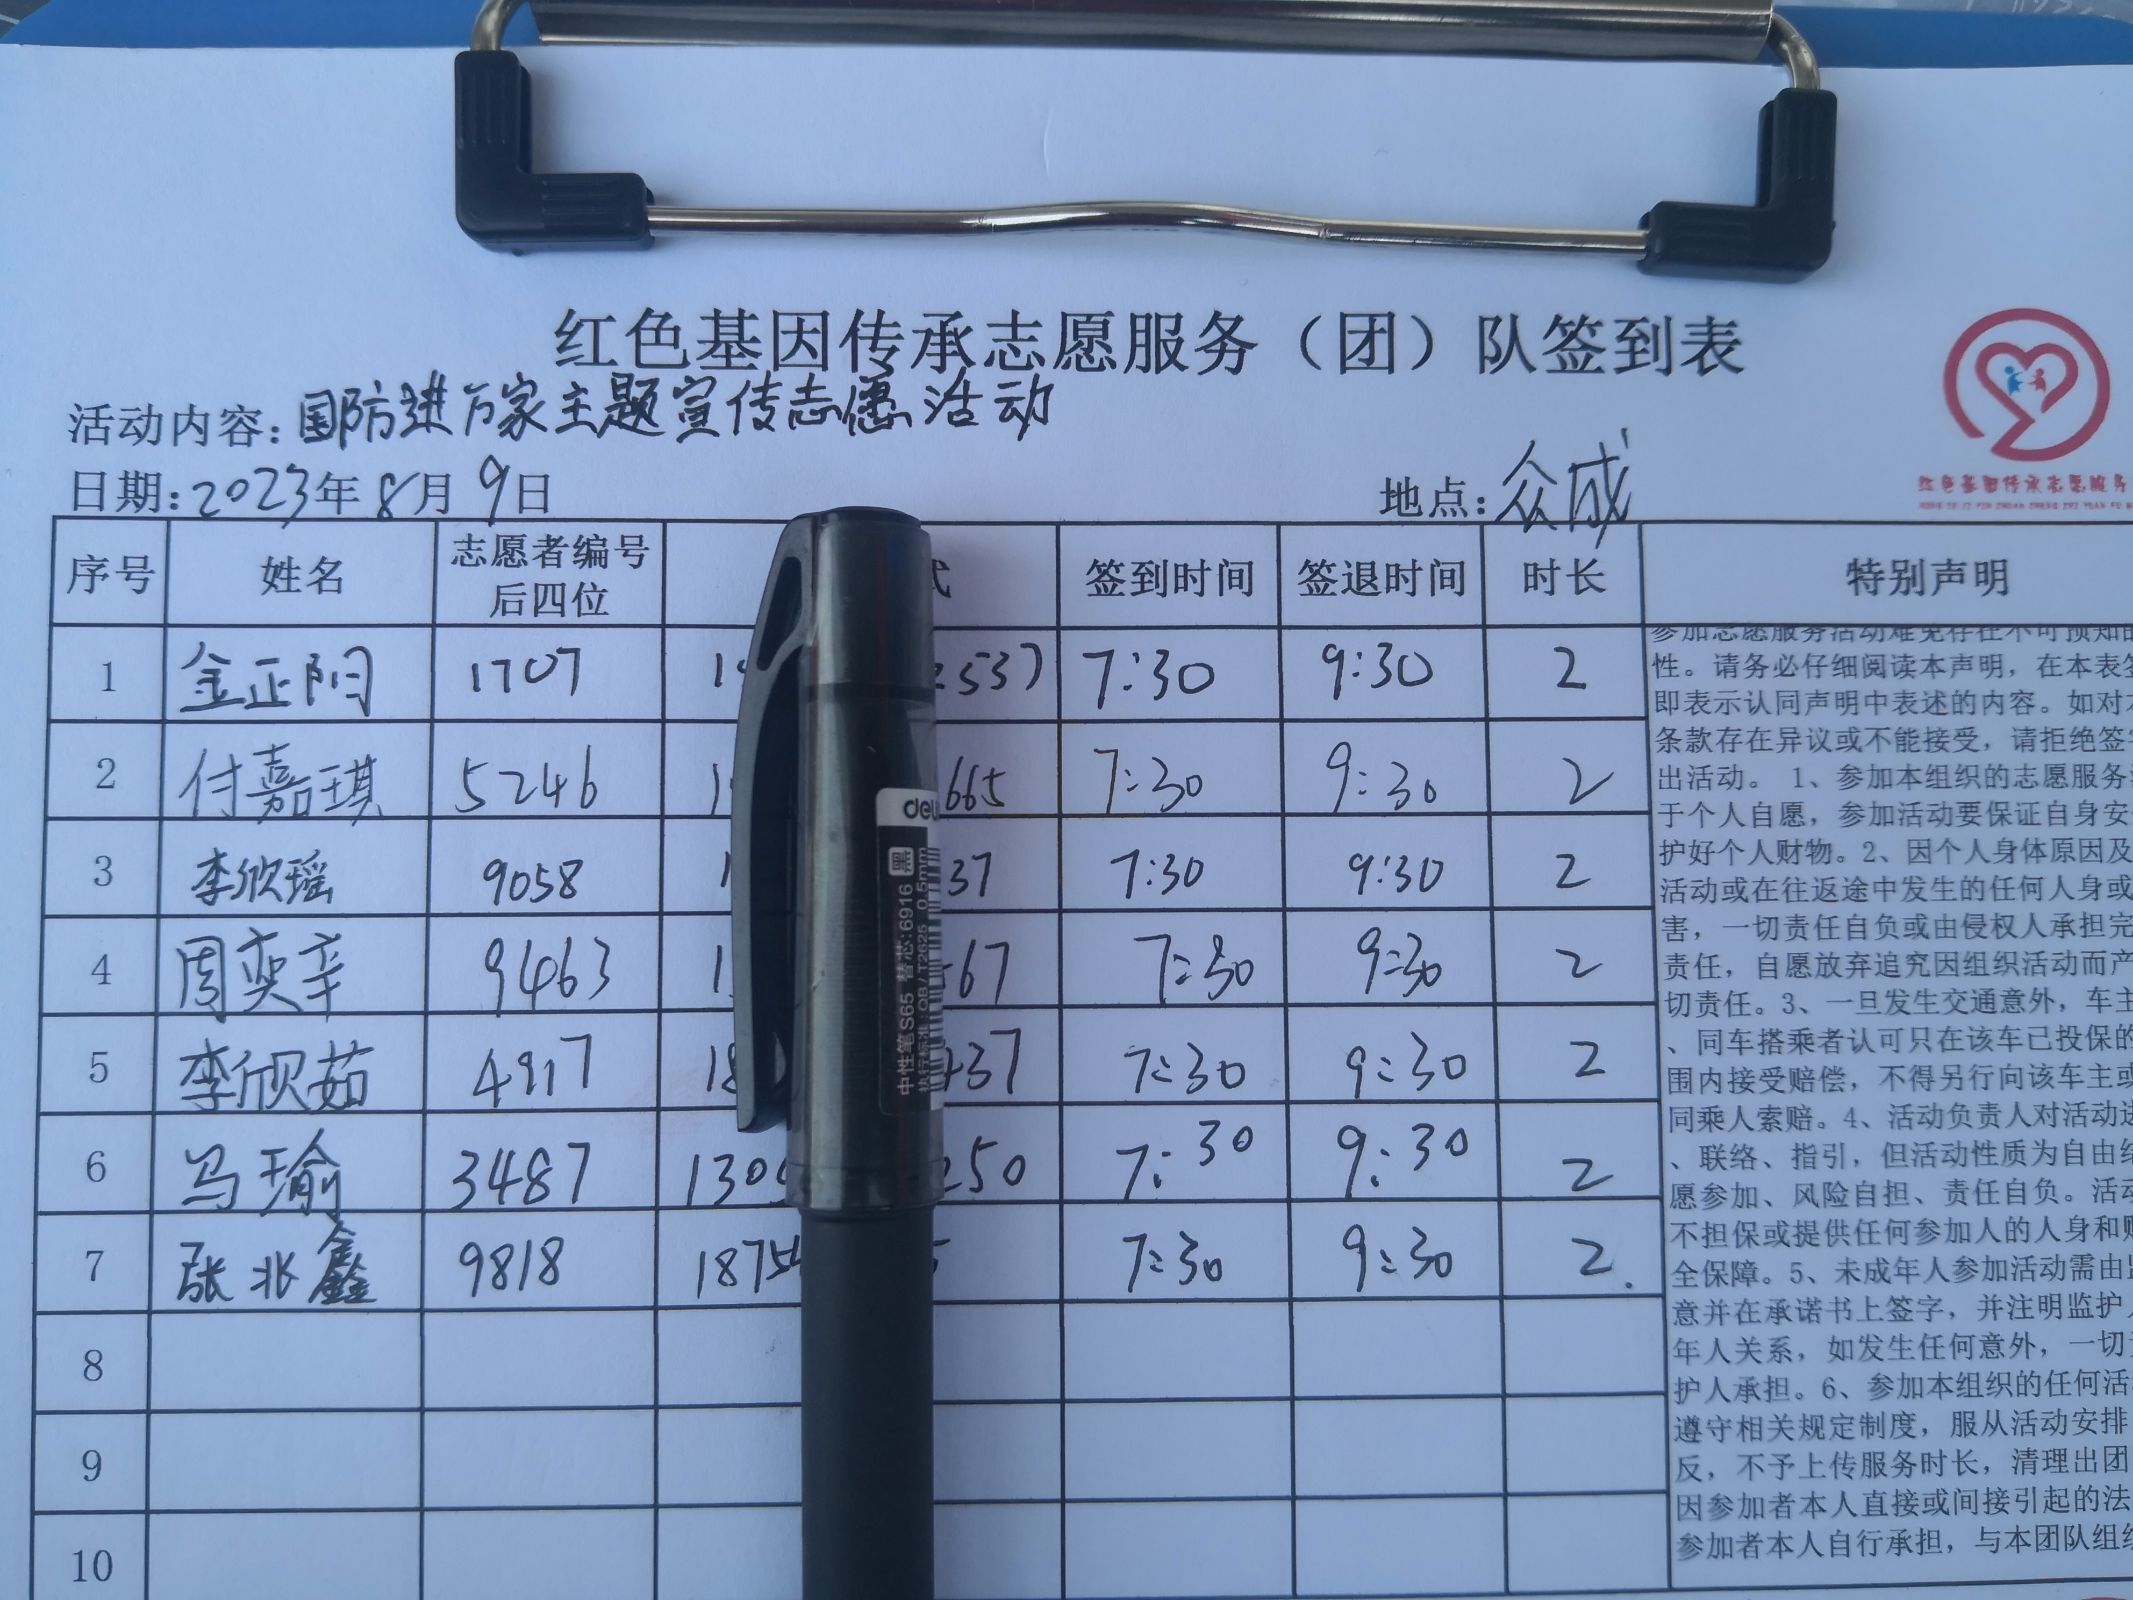 红色基因传承志愿服务（团）队签到表
活动内容：国防进万家主题宣传志愿活动
日期：2023年8月9日 地点：众成
红色基因传承志愿服务
序号 姓名 志愿者编号后四位 式 签到时间 签退时间 时长 特别声明
1 金正阳 1707 2537 7:30 9:30 2
2 付嘉琪 5246 665 7:30 9:30 2
3 李欣瑶 9058 37 7:30 9:30 2
4 周奕辛 9463 67 7:30 9:30 2
5 李欣茹 4917 18 437 7:30 9:30 2
6 马瑜 3487 130 250 7:30 9:30 2
7 张兆鑫 9818 1875 7:30 9:30 2.
8
9
10
参加志愿服务活动难免存在不可预知的
性。请务必仔细阅读本声明，在本表签
即表示认同声明中表述的内容。如对本
条款存在异议或不能接受，请拒绝签字
出活动。 1、参加本组织的志愿服务活
于个人自愿，参加活动要保证自身安
护好个人财物。2、因个人身体原因及
活动或在往返途中发生的任何人身或
害，一切责任自负或由侵权人承担完
责任，自愿放弃追究因组织活动而产
切责任。3、一旦发生交通意外，车主
、同车搭乘者认可只在该车已投保的
围内接受赔偿，不得另行向该车主或
同乘人索赔。4、活动负责人对活动进
、联络、指引，但活动性质为自由结
愿参加、风险自担、责任自负。活动
不担保或提供任何参加人的人身和财
全保障。5、未成年人参加活动需由监
意并在承诺书上签字，并注明监护人
年人关系，如发生任何意外，一切责
护人承担。6、参加本组织的任何活动
遵守相关规定制度，服从活动安排
反，不予上传服务时长，清理出团
因参加者本人直接或间接引起的法
参加者本人自行承担，与本团队组织
deli
黑
中性笔S65 替芯:6916 0.5mm
执行标准:QB/T2625